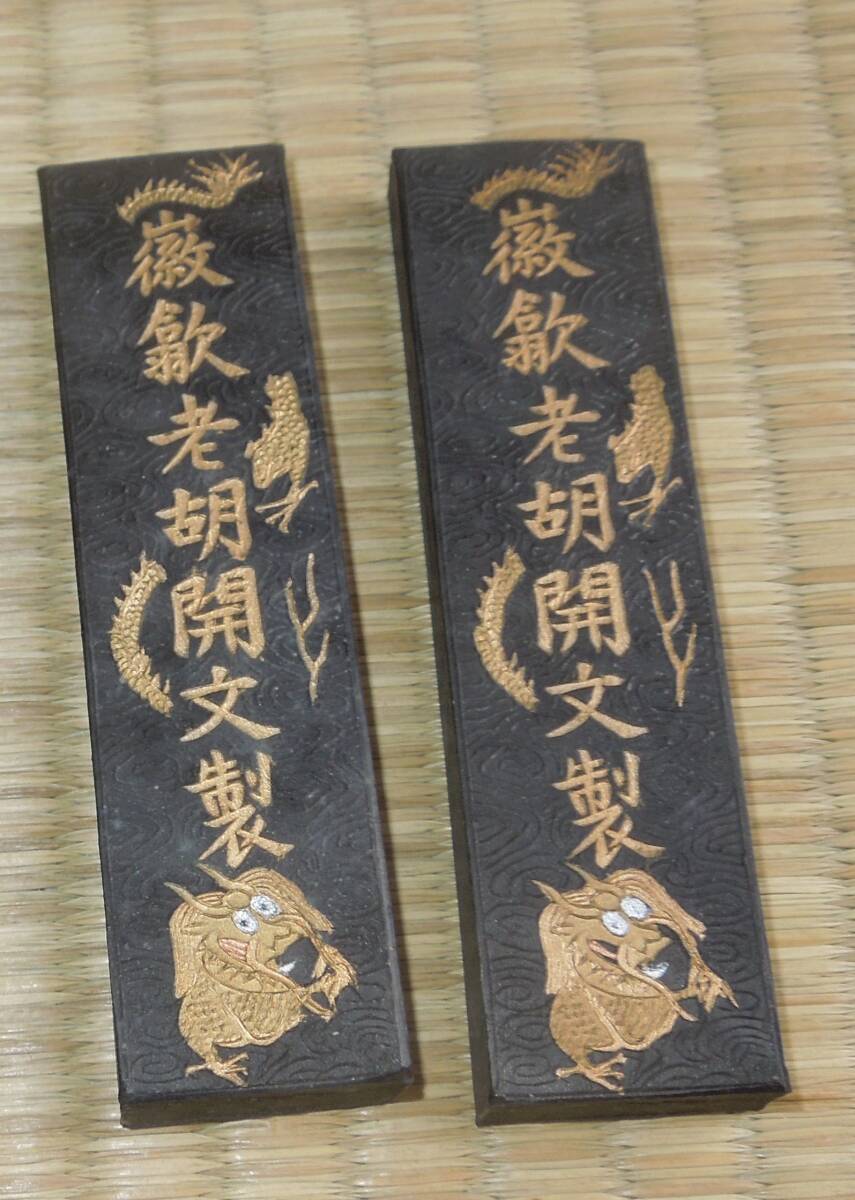 徽歙老胡開文製
徽歙老胡開文製